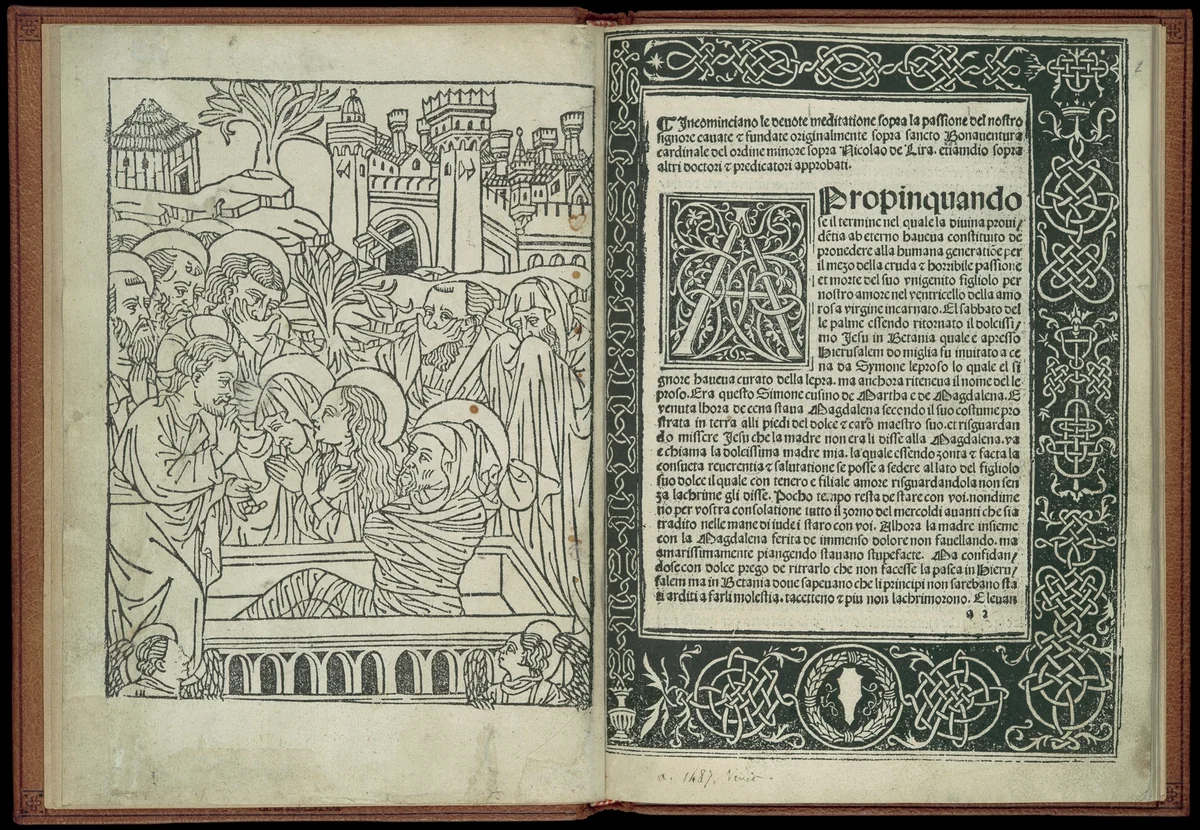 2
¶ Incominciano le deuote meditatione sopra la passione del nostro
signore cauate ⁊ fundate originalmente sopra sancto Bonauentura
cardinale del ordine minore sopra Nicolao de Lira. etiamdio sopra
altri doctori ⁊ predicatori approbati.
APropinquando
se il termine nel quale la diuina proui/
dẽtia ab eterno haueua constituito de
prouedere alla humana generatiõe per
il mezo della cruda ⁊ horribile passione
et morte del suo vnigenito figliolo per
nostro amore nel ventricello della amo
rosa virgine incarnato. El sabbato del
le palme essendo ritornato il dolcissi/
mo Jesu in Betania quale e apresso
Hierusalem do miglia fu inuitato a ce
na da Symone leproso lo quale el si
gnore haueua curato della lepra. ma anchora riteneua il nome del le
proso. Era questo Simone cusino de Martha e de Magdalena. E
venuta lhora de cena staua Magdalena secendo il suo costume pro
strata in terra alli piedi del dolce ⁊ caro maestro suo. et risguardan
do missere Jesu che la madre non era li disse alla Magdalena. va
e chiama la dolcissima madre mia. la quale essendo zonta ⁊ facta la
consueta reuerentia ⁊ salutatione se posse a sedere al lato del figliolo
suo dolce il quale con tenero e filiale amore risguardandola non sen
za lachrime gli disse. Pocho tempo resta de stare con voi. nondime
no per vostra consolatione tutto il zorno del mercoldi auanti che sia
tradito nelle mane di iudei staro con voi. Alhora la madre insieme
con la Magdalena ferita de immenso dolore non fauellando. ma
amarissimamente piangendo stauano stupefacte. Ma confidan/
dose con dolce prego de ritrarlo che non facesse la pasca in Hieru/
salem ma in Betania doue sapeuano che li principi non sarebano sta
ti arditi a farli molestia. tacetteno ⁊ piu non lachrimorono. E leuan
a 2
a. 1487. Venet.